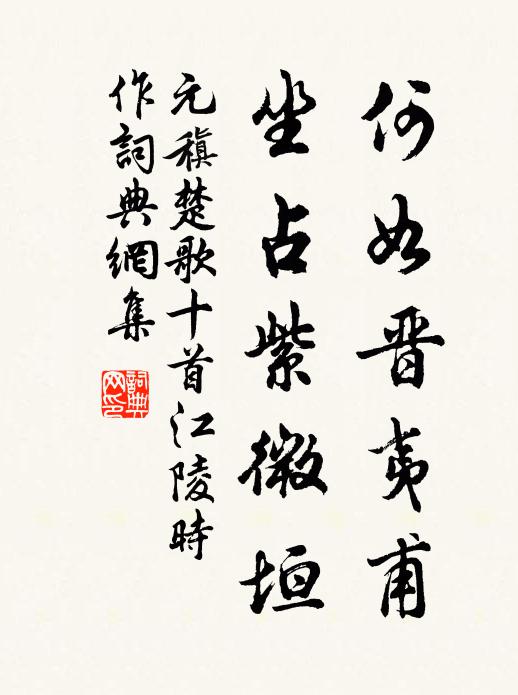 何如晋夷甫
坐占紫微垣
元稹楚歌十首江陵時
作詞典網集
詞典网印